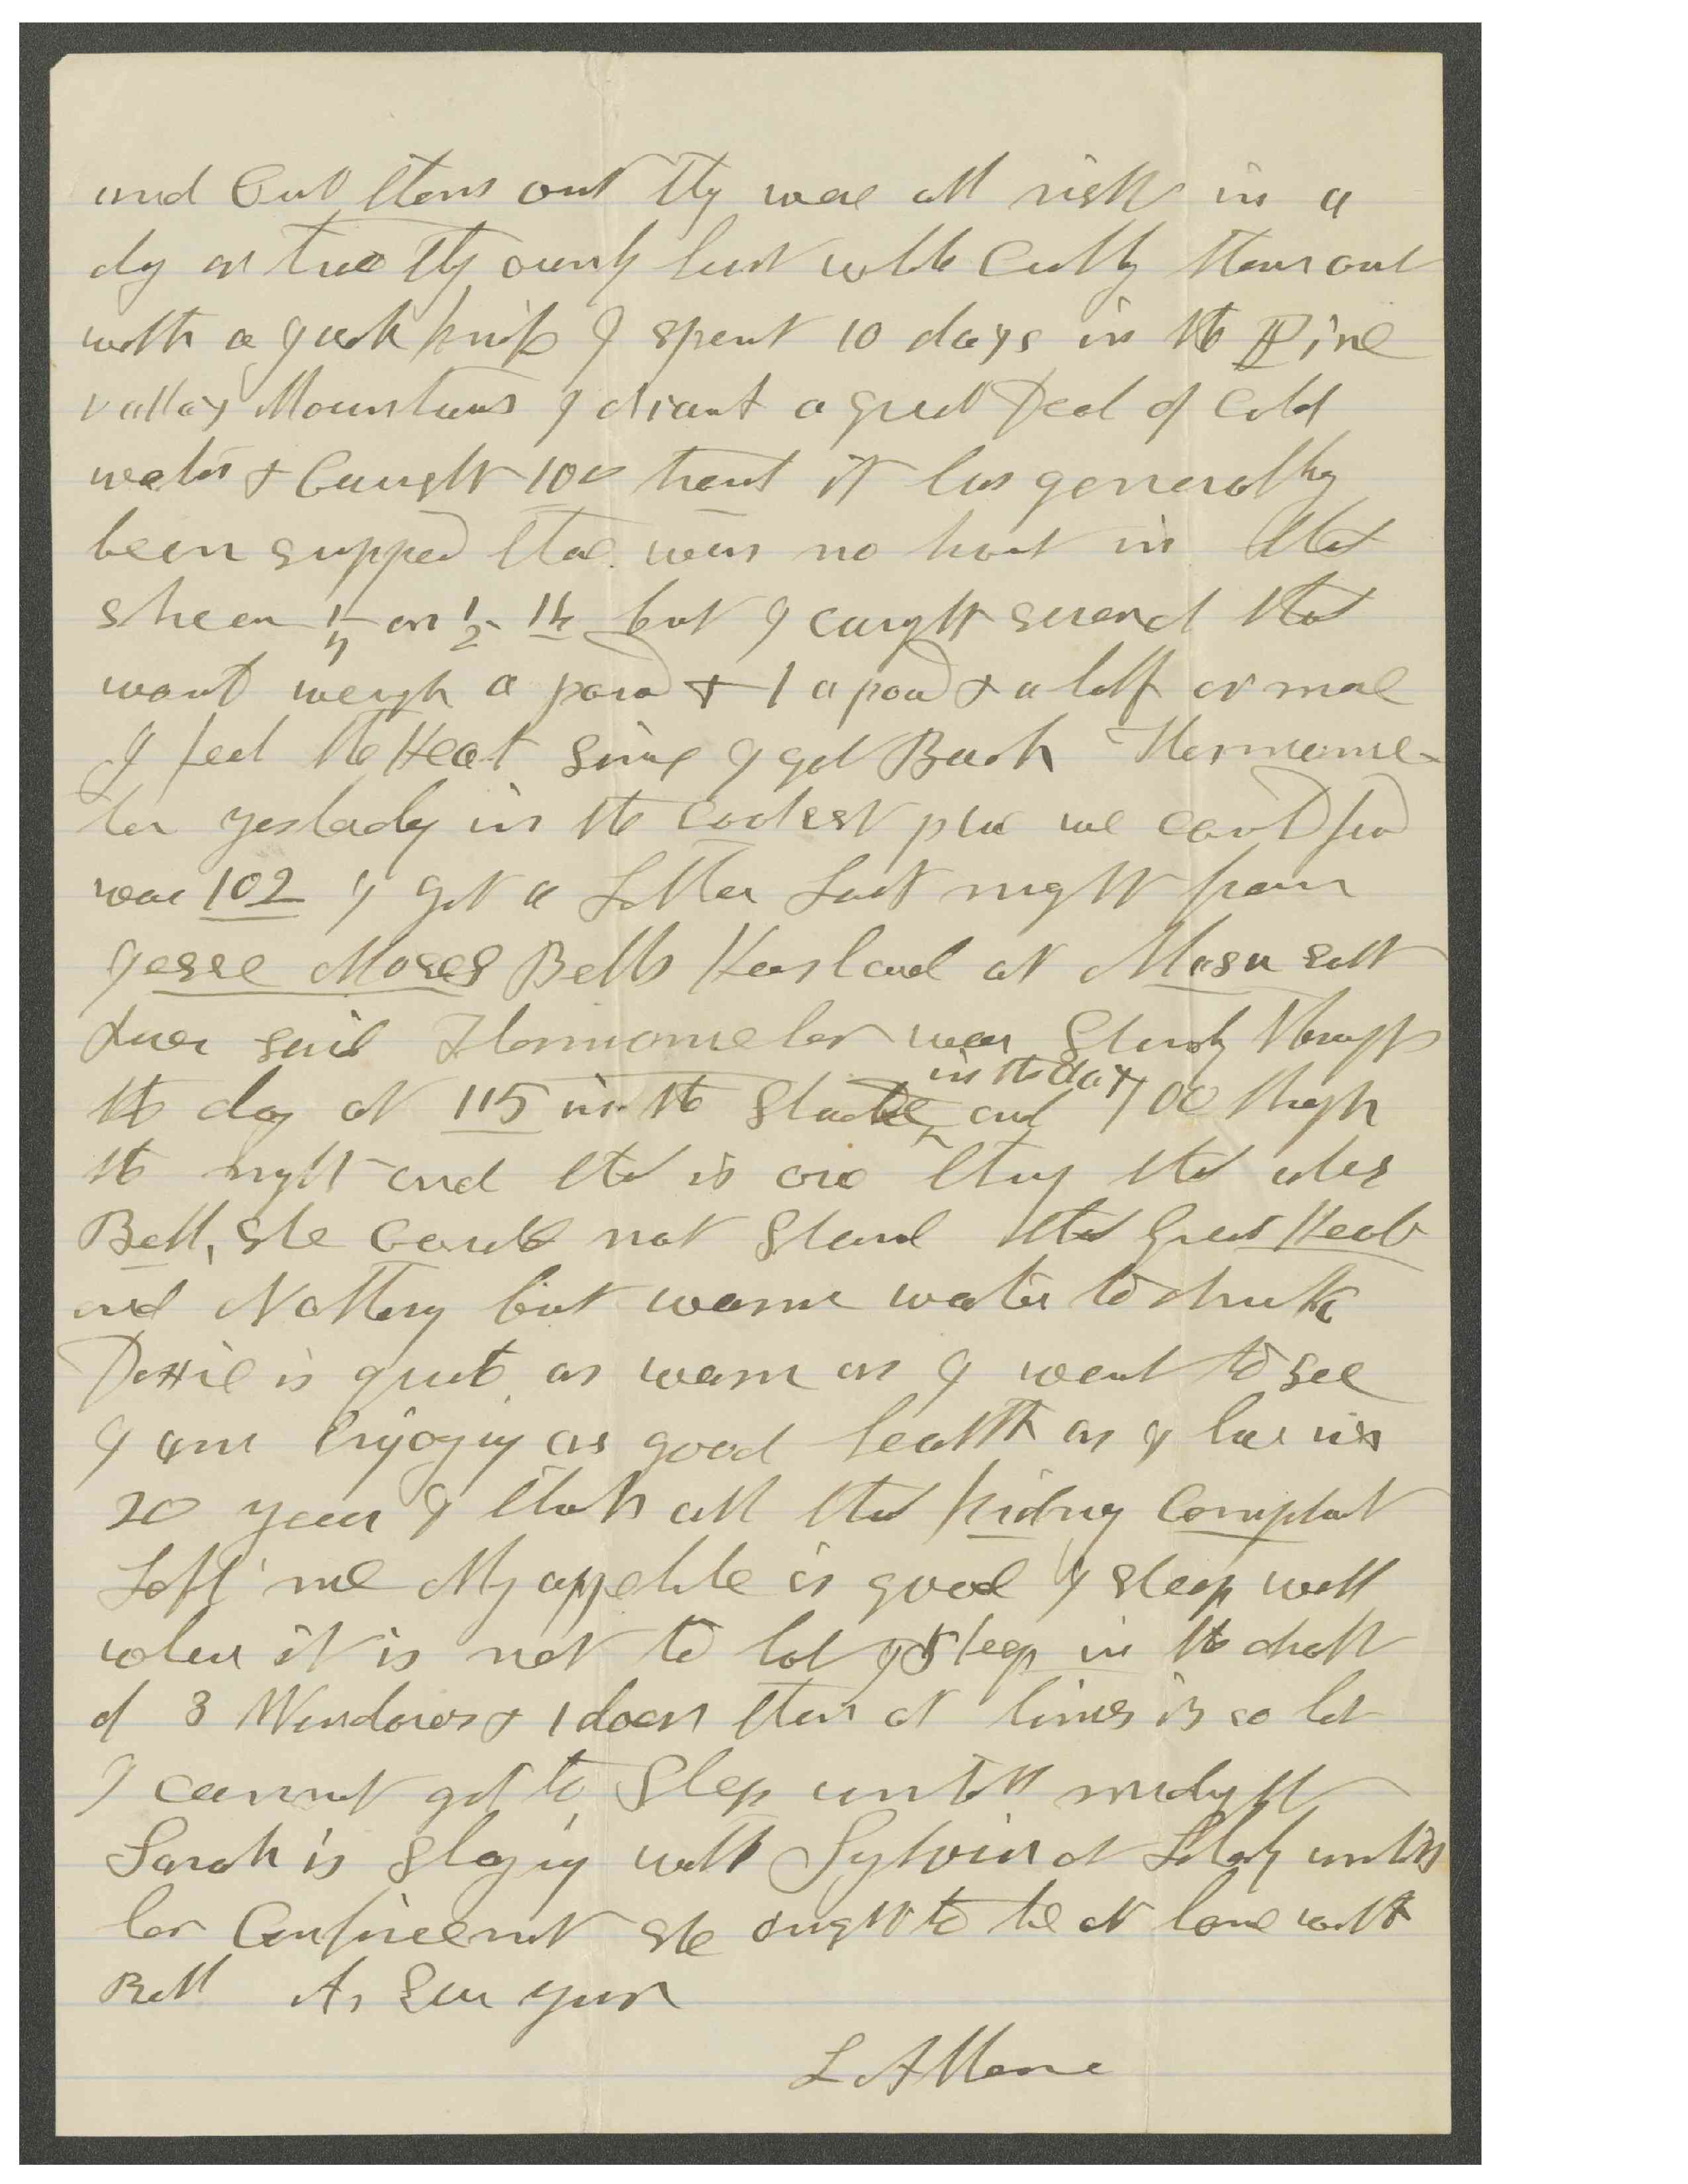 and Cut them out they ware all right in a
day or two they ownly hurt while Cutting them out
with a good knife I spent 10 days in the Pine
valley Mountains I drank a great Deal of Cold
water & Caught 100 trout it has generally
been supped thare was no trout in that
stream 1/4 or 1/2 lb but I caught several that
would weigh a pound & 1 a pound & a half or more
I feel the Heat since I got Back Thermome-
ter yesterday in the coolest place we could find
was 102 I got a Letter Last night from
Jesse Moses Bells Husband at Mesa Salt
River said Thermometer was Steady through
the day at 115 in the Shade in the day and 100 through
the night and that is one thing that ales
Bell, she could not stand that great Heat
and Nothing but warm water to drink
Dottie is quite as warm as I want to see
I am Enjoying as good health as I have in
20 years I think all that kidney Complaint
Left me My appetite is good I sleep well
when it is not to hot I Sleep in the draft
of 3 Windows & 1 door then at times is so hot
I cannot get to Sleep untill midnight
Sarah is staying with Sylvia at Lehigh untill
her Confinement she ought to be at home with
Bell As Ever yours
L A